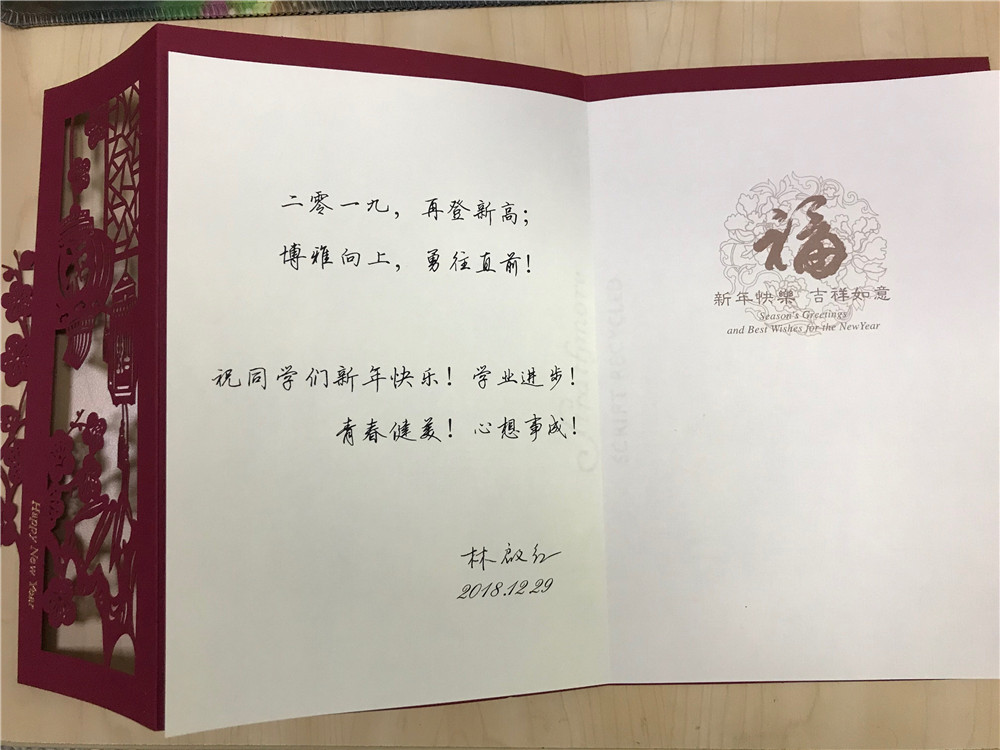 二零一九，再登新高；
博雅向上，勇往直前！
祝同学们新年快乐！学业进步！
青春健美！心想事成！
林启红
2018.12.29
福
新年快樂 吉祥如意
Season's Greetings
and Best Wishes for the NewYear
Happy New Year